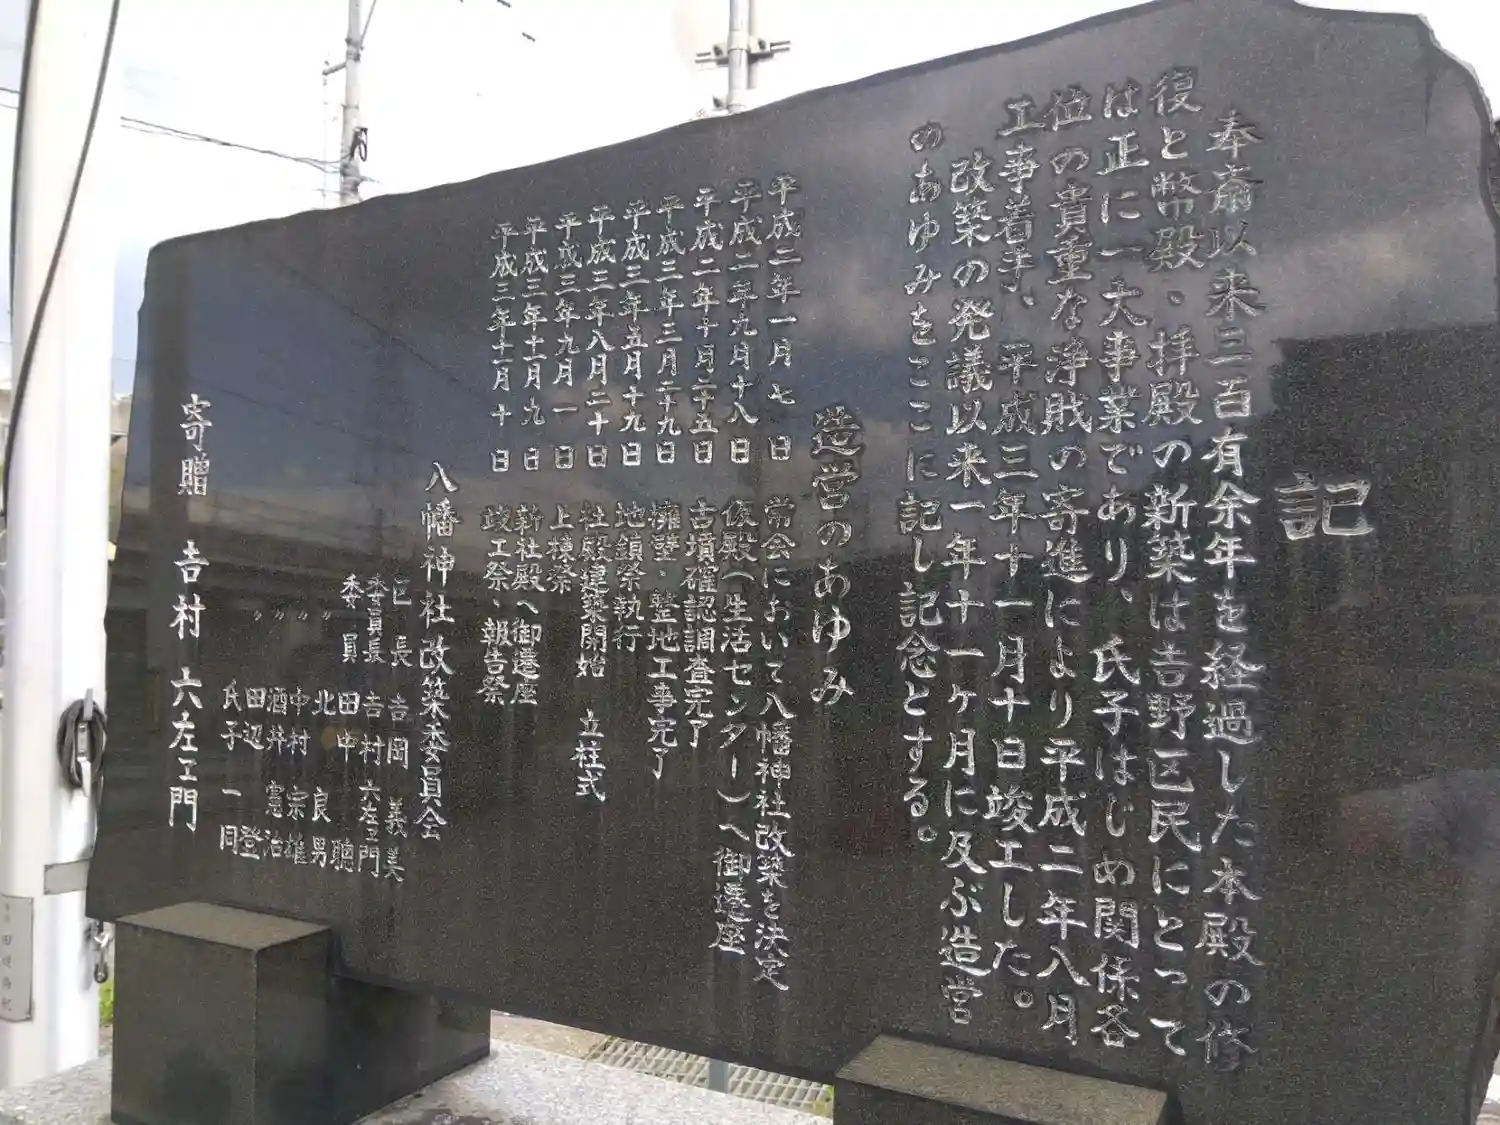 記
奉斎以来三百有余年を経過した本殿の修
復と幣殿・拝殿の新築は吉野区民にとって
は正に一大事業であり、氏子はじめ関係各
位の貴重な浄財の寄進により平成二年八月
工事着手、平成三年十一月十日竣工した。
改築の発議以来一年十一ヶ月に及ぶ造営
のあゆみをここに記し記念とする。
造営のあゆみ
平成二年一月七日 常会において八幡神社改築を決定
平成二年九月十八日 仮殿(生活センター)へ御遷座
平成二年十月二十五日 古墳確認調査完了
平成三年三月二十九日 擁壁・整地工事完了
平成三年五月十九日 地鎮祭執行
平成三年八月二十日 社殿建築開始 立柱式
平成三年九月一日 上棟祭
平成三年十一月九日 新社殿へ御遷座
平成三年十一月十日 竣工祭・報告祭
八幡神社改築委員会
区長 吉岡義美
委員長 吉村六左ヱ門
委員 田中聰
〃 北良男
〃 中村宗雄
〃 酒井憲治
〃 田辺登
氏子一同
寄贈 吉村六左ヱ門